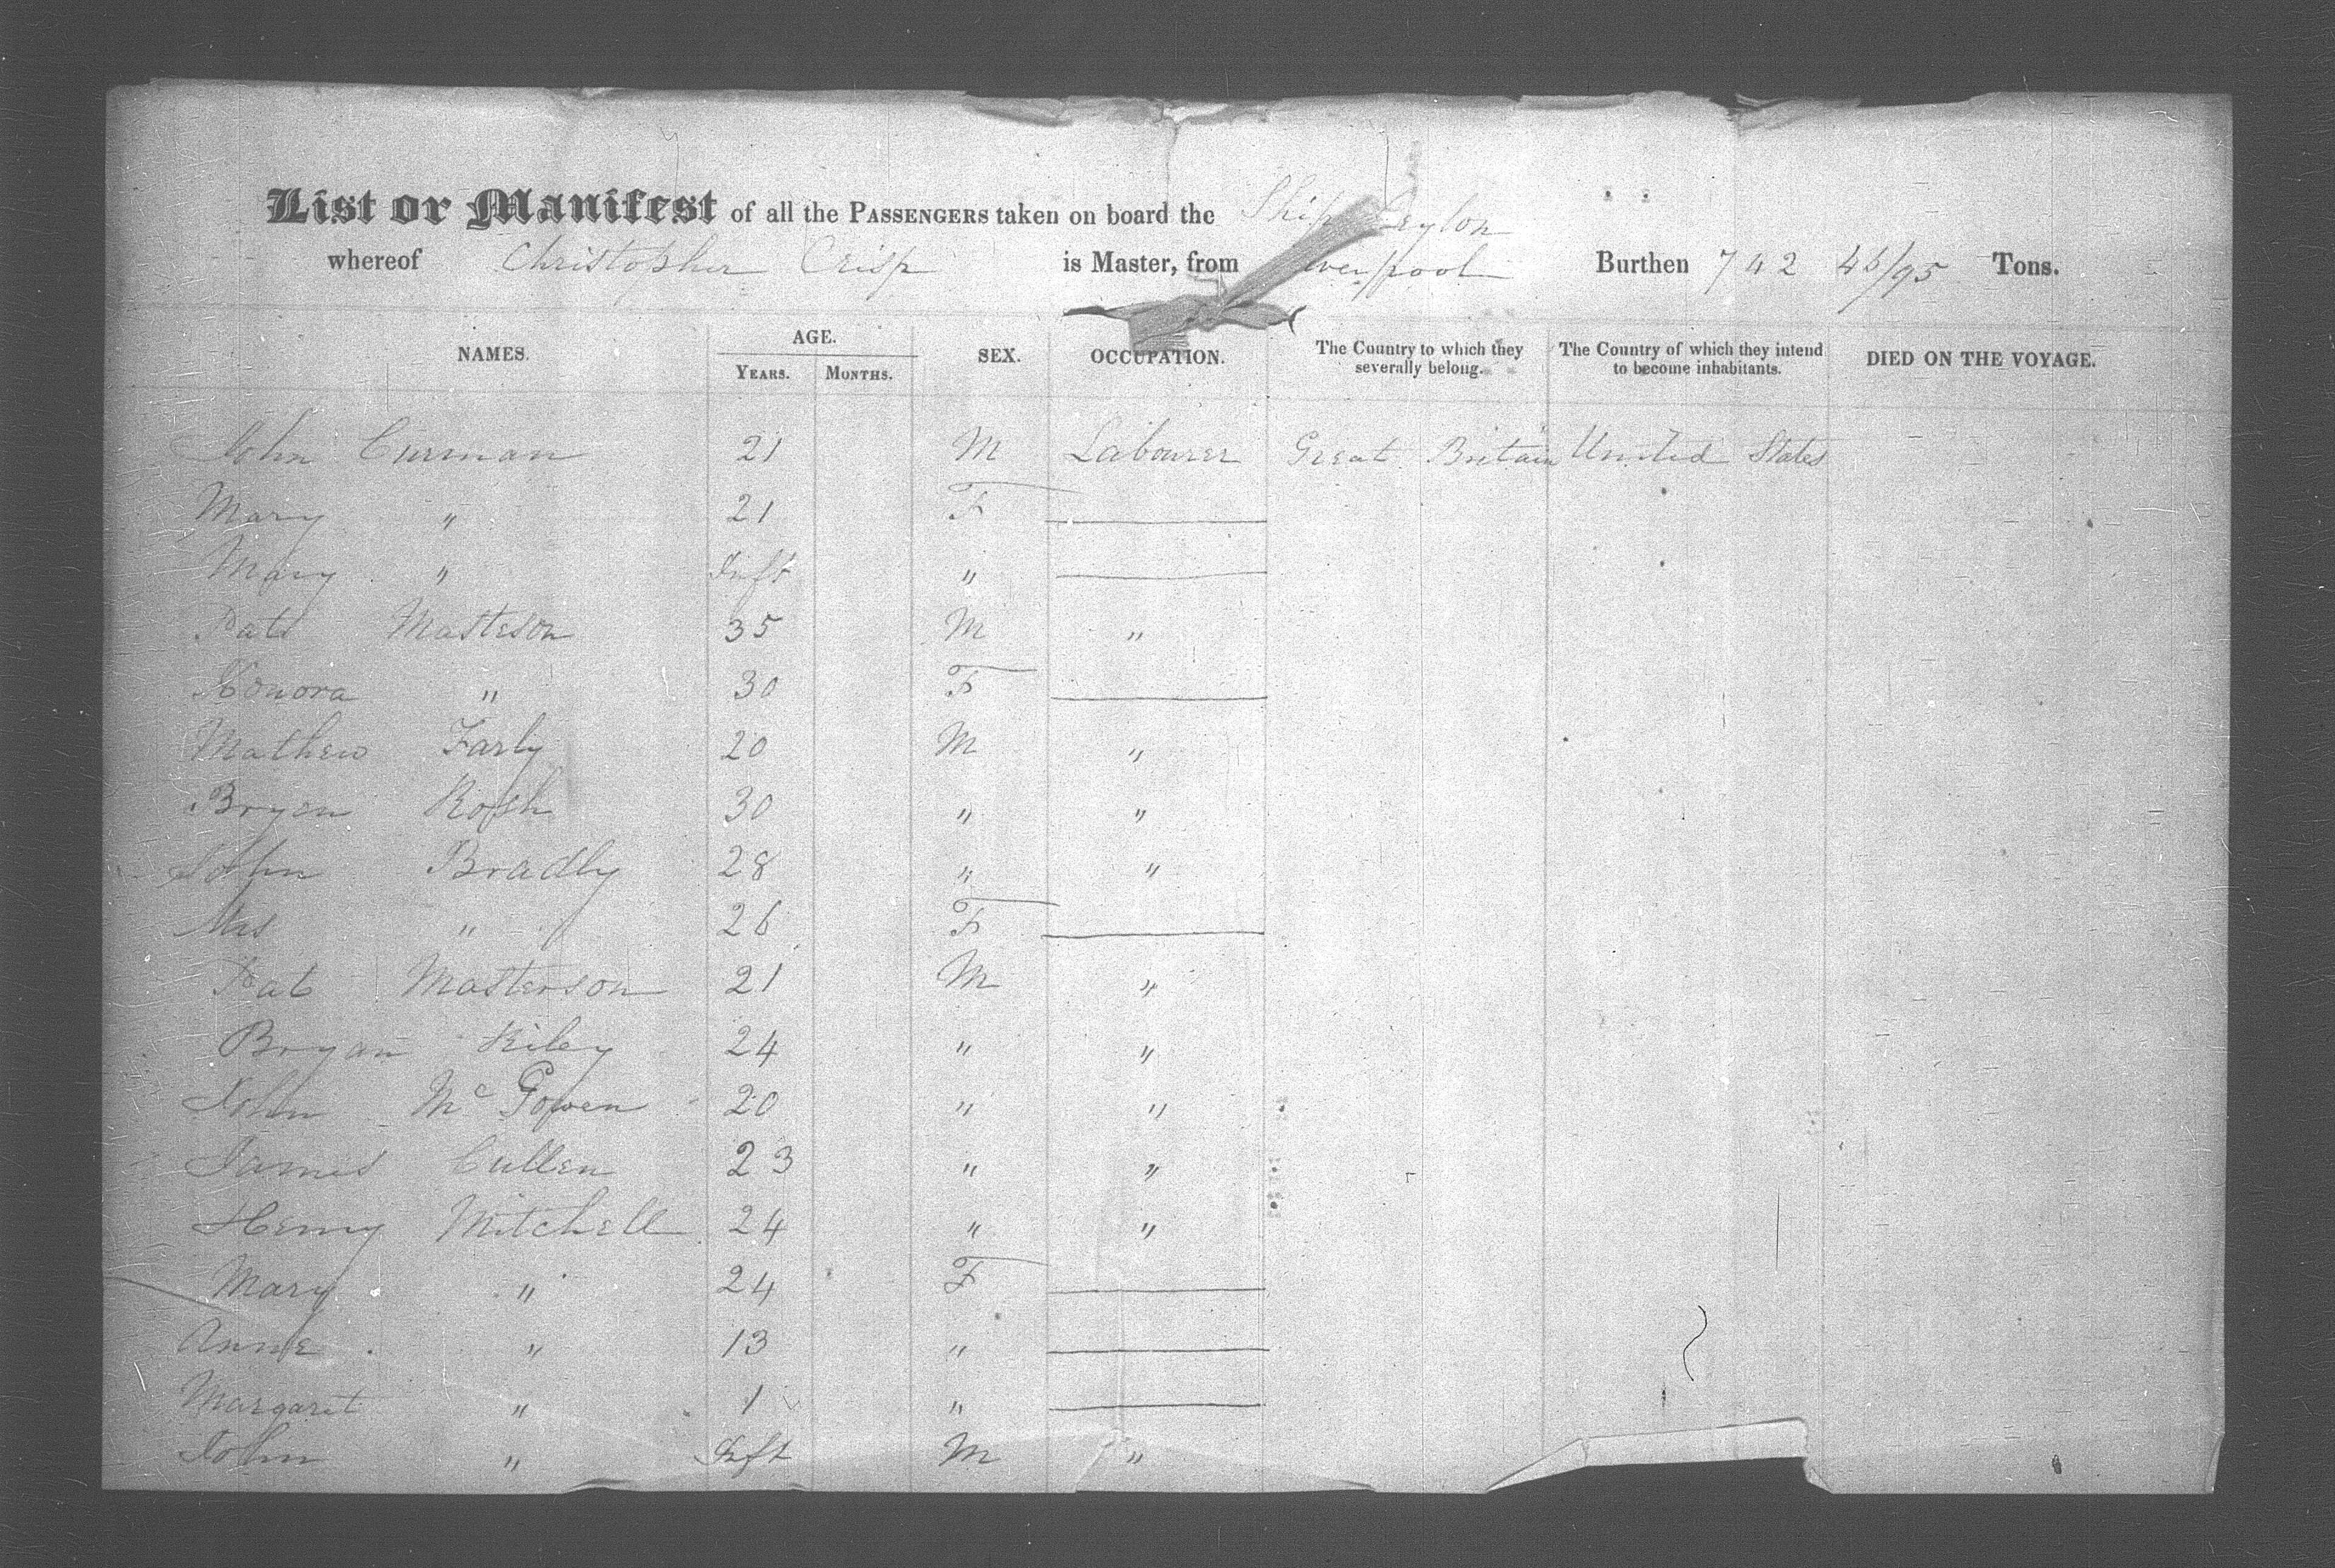 List or Manifest of all the PASSENGERS taken on board the Ship Ceylon
whereof Christopher Crisp is Master, from Liverpool Burthen 742 46/95 Tons.
NAMES. AGE. YEARS. MONTHS. SEX. OCCUPATION. The Country to which they severally belong. The Country of which they intend to become inhabitants. DIED ON THE VOYAGE.
John Curman 21 M Labourer Great Britain United States
Mary " 21 F
Mary " Inft "
Patk Masteson 35 M "
Honora " 30 F
Mathew Farly 20 M "
Bryen Rosh 30 " "
John Bradly 28 " "
Mrs " 26 F
Pat Masterson 21 M "
Bryan Riley 24 " "
John Mc Gowen 20 " "
James Cullen 23 " "
Henry Mitchell 24 " "
Mary " 24 F
Anne " 13 "
Margaret " 1 "
John " Inft M "